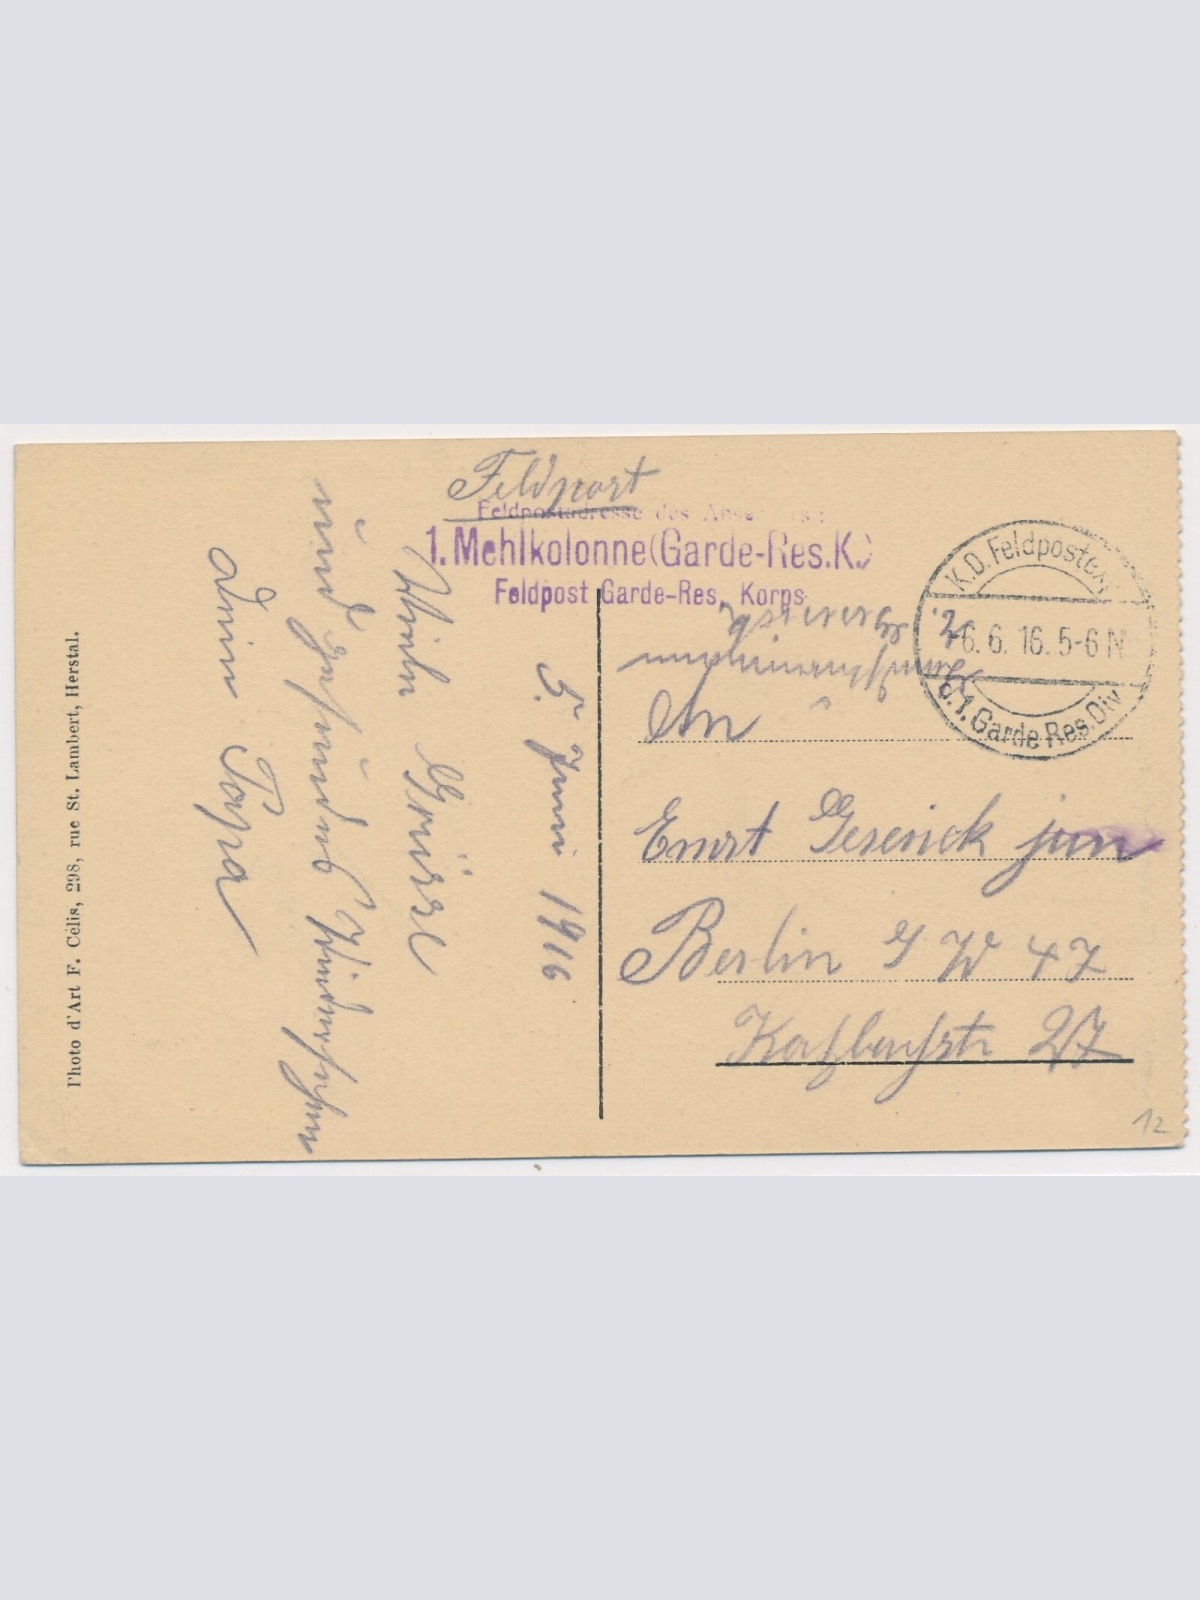 Feldpost
Feldpostadresse des Absenders:
1. Mehlkolonne (Garde-Res. K.)
Feldpost Garde-Res. Korps
K.D. Feldpostexp.
-6.6.16. 5-6 N
d. 1. Garde Res. Div.
5. Juni 1916
Viele Grüsse
und gesundes Wiedersehen
Dein Papa
An
Ernst Gesenick jun
Berlin S W 47
Katzbachstr 27
12
Photo d'Art F. Célis, 298, rue St. Lambert, Herstal.